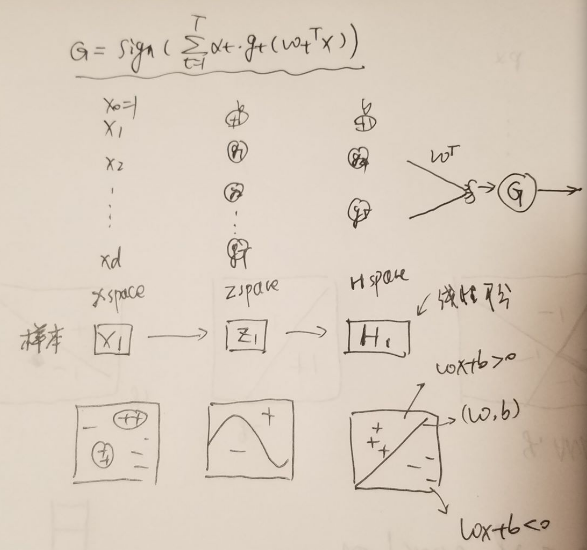 G = sign ( Σ_{t=1}^{T} αt · gt (wt^T x) )
x0=1
x1
x2
xd
w^T
G
x space
z space
H space
线性可分
样本
X1
Z1
H1
wx+b>0
(w,b)
wx+b<0